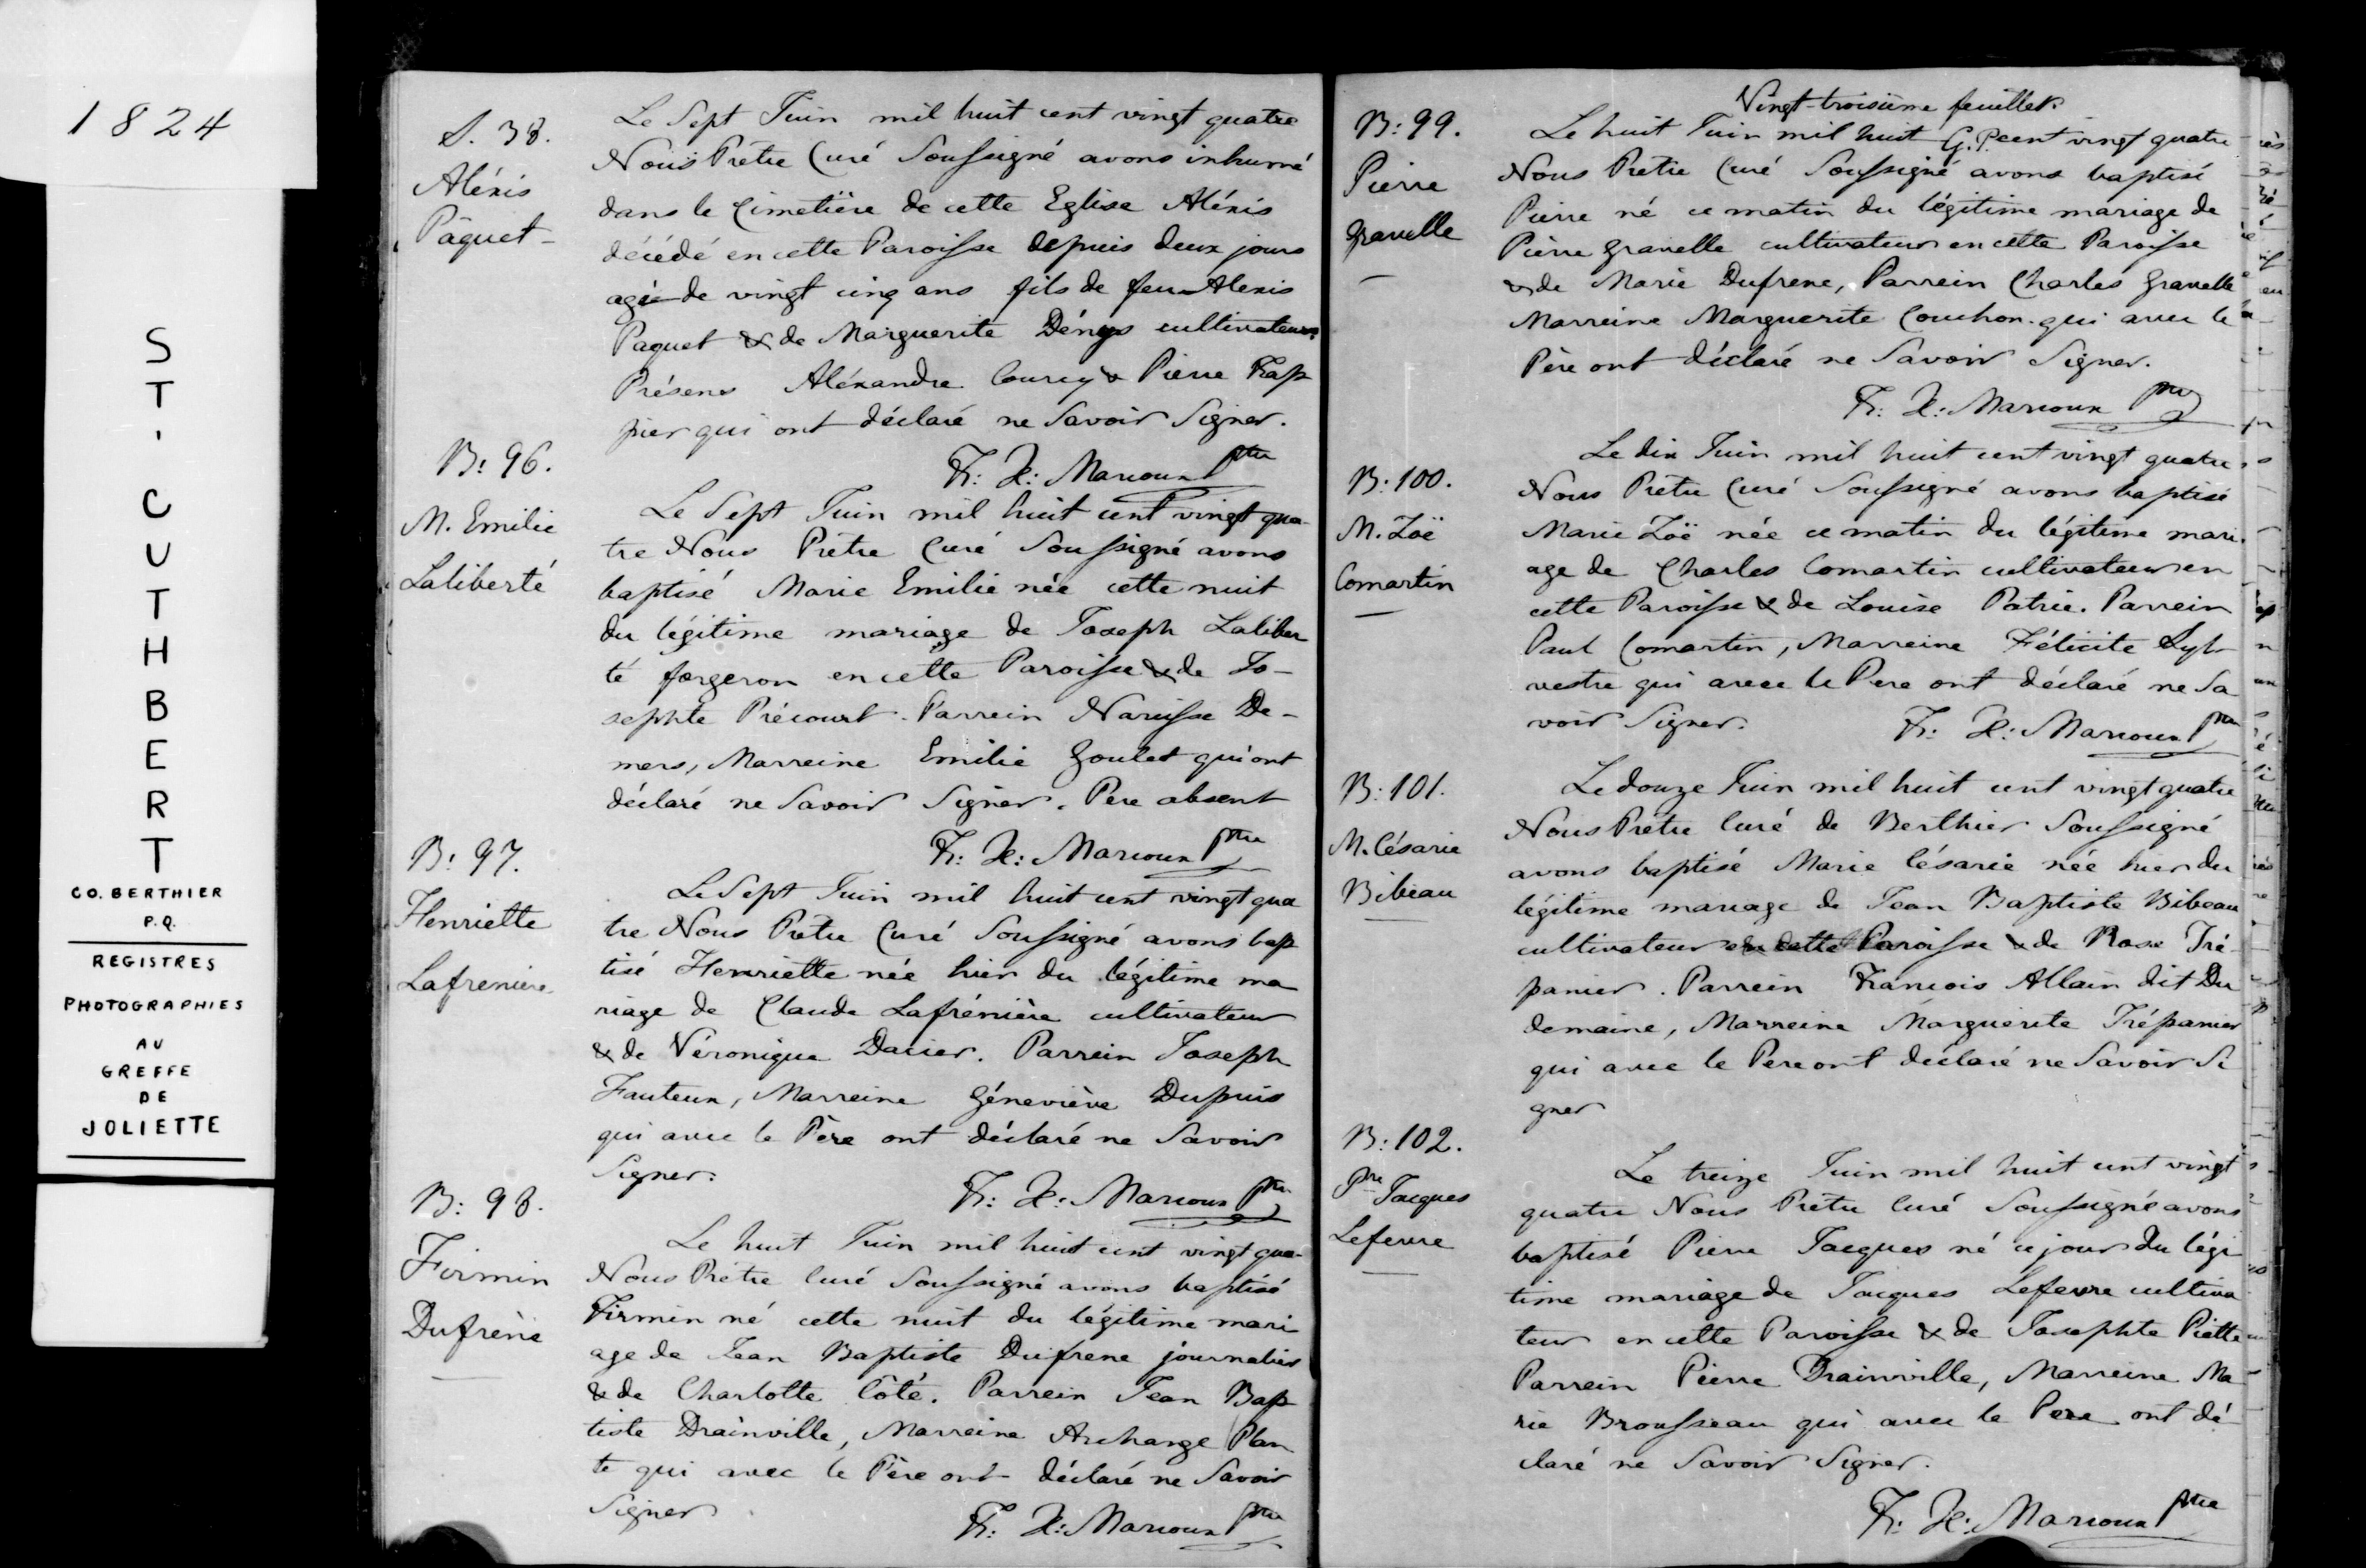 1824
ST. CUTHBERT
CO. BERTHIER
P.Q.
REGISTRES
PHOTOGRAPHIES
AU
GREFFE
DE
JOLIETTE
S. 38.
Aléxis
Pâquet
Le Sept Juin mil huit cent vingt quatre
Nous Prêtre Curé Soussigné avons inhumé
dans le Cimetière de cette Eglise Aléxis
décédé en cette Paroisse depuis deux jours
agé de vingt cinq ans fils de feu Alexis
Paquet & de Marguerite Dénys cultivateurs
Présens Aléxandre Courcy & Pierre Frap
pier qui ont déclaré ne Savoir Signer.
Fr: X: Marcoux Ptre
B: 96.
M. Emilie
Laliberté
Le Sept Juin mil huit cent vingt qua-
tre Nous Prêtre Curé Soussigné avons
baptisé Marie Emilie née cette nuit
du légitime mariage de Joseph Laliber
té forgeron en cette Paroisse & de Jo-
sephte Précourt. Parrein Narcisse De-
mers, Marreine Emilie Goulet qui ont
déclaré ne Savoir Signer. Pere absent
Fr: X: Marcoux Ptre
B: 97.
Henriette
Lafreniere
Le Sept Juin mil huit cent vingt qua
tre Nous Prêtre Curé Soussigné avons bap
tisé Henriette née hier du légitime ma
riage de Claude Lafrénière cultivateur
& de Véronique Dacier. Parrein Joseph
Fauteux, Marreine Géneviève Dupuis
qui avec le Père ont déclaré ne Savoir
Signer.
Fr: X: Marcoux Ptre
B: 98.
Firmin
Dufrène
Le huit Juin mil huit cent vingt qua-
Nous Prêtre Curé Soussigné avons baptisé
Firmin né cette nuit du légitime mari
age de Jean Baptiste Dufrene journalier
& de Charlotte Côté. Parrein Jean Bap
tiste Drainville, Marreine Archange Plan
te qui avec le Père ont déclaré ne Savoir
Signer
Fr: X: Marcoux Ptre
Vingt-troisième feuillet.
B: 99.
Pierre
Gravelle
Le huit Juin mil huit G. P. cent vingt quatre
Nous Prêtre Curé Soussigné avons baptisé
Pierre né ce matin du légitime mariage de
Pierre Gravelle cultivateur en cette Paroisse
& de Marie Dufrene, Parrein Charles Gravelle
Marreine Marguerite Couchon. qui avec le
Père ont déclaré ne Savoir Signer.
Fr: X: Marcoux Ptre
B: 100.
M. Zoë
Comartin
Le dix Juin mil huit cent vingt quatre
Nous Prêtre Curé Soussigné avons baptisé
Marie Zoë née ce matin du légitime mari
age de Charles Comartin cultivateur en
cette Paroisse & de Louise Patrie. Parrein
Paul Comartin, Marreine Félicite Syl-
vestre qui avec le Pere ont déclaré ne Sa
voir Signer.
Fr: X: Marcoux Ptre
B: 101.
M. Césarie
Bibeau
Le douze Juin mil huit cent vingt quatre
Nous Prêtre Curé de Berthier Soussigné
avons baptisé Marie Césarie née hier du
légitime mariage de Jean Baptiste Bibeau
cultivateur en cette Paroisse & de Rose Tré-
panier. Parrein François Allain dit Du
demaine, Marreine Marguerite Trépanier
qui avec le Pere ont déclaré ne Savoir Si
gner
B: 102.
Pre Jacques
Lefevre
Le treize Juin mil huit cent vingt
quatre Nous Prêtre Curé Soussigné avons
baptisé Pierre Jacques né ce jour du légi
time mariage de Jacques Lefevre cultiva
teur en cette Paroisse & de Josephte Piette
Parrein Pierre Drainville, Marreine Ma
rie Brousseau qui avec le Pere ont dé
claré ne Savoir Signer.
Fr: X: Marcoux Ptre